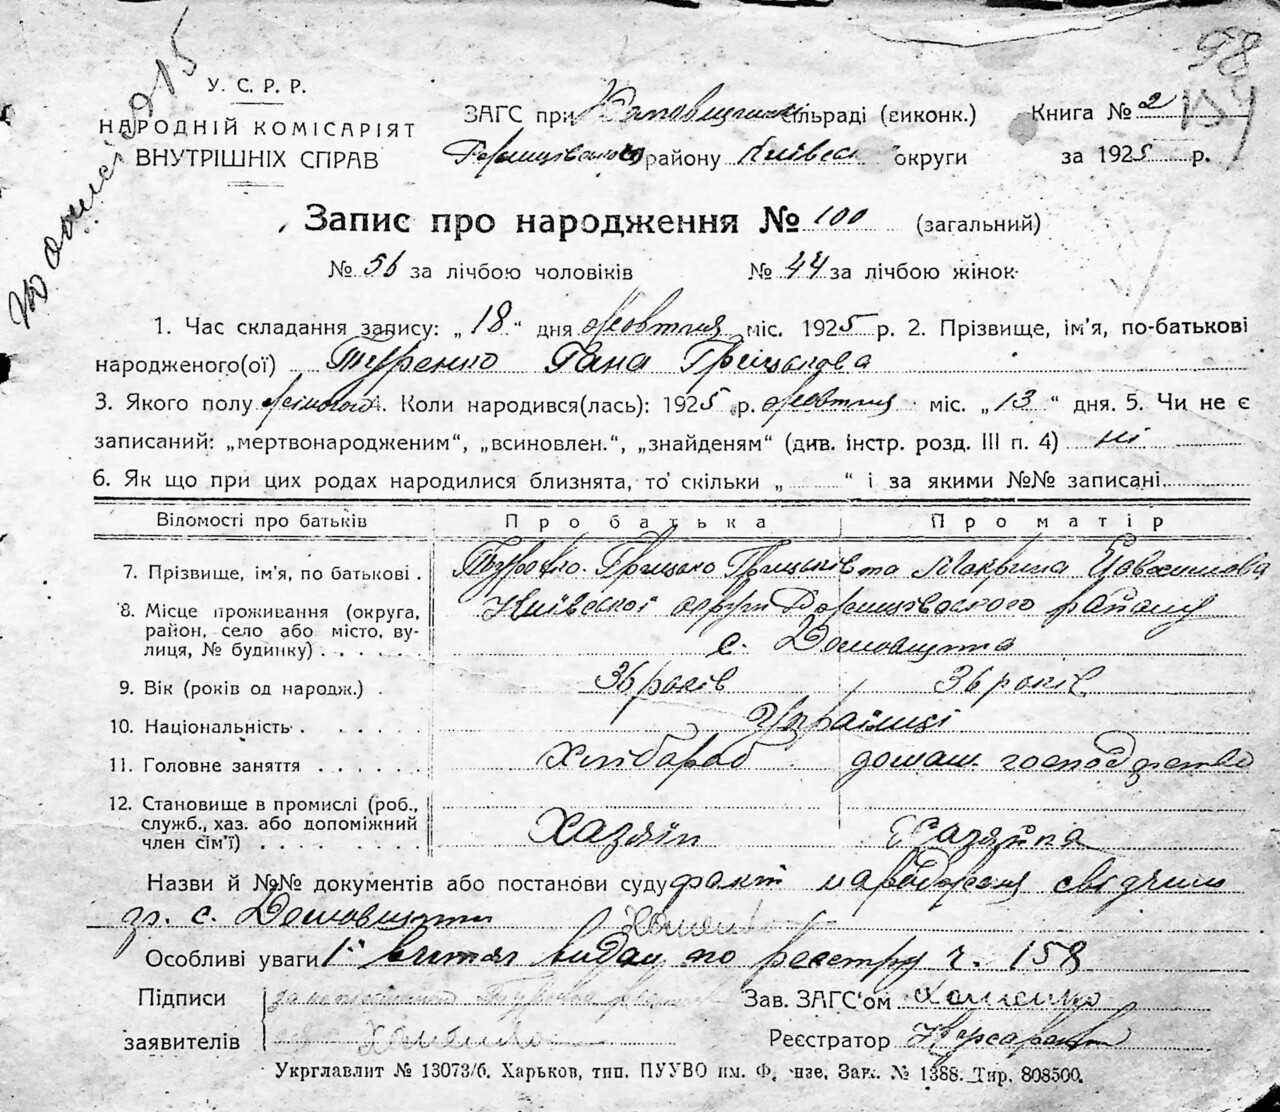 98
У. С. Р. Р.
НАРОДНІЙ КОМІСАРІЯТ
ВНУТРІШНІХ СПРАВ
ЗАГС при сільраді (виконк.)
району округи
Книга № 2
за 1925 р.
Запис про народження № 100 (загальний)
№ 56 за лічбою чоловіків № 44 за лічбою жінок
1. Час складання запису: „18“ дня жовтня міс. 1925 р. 2. Прізвище, ім'я, по-батькові
народженого(ої) Туренко Гана Грицькова
3. Якого полу жіночого 4. Коли народився(лась): 1925 р. жовтня міс. „13“ дня. 5. Чи не є
записаний: „мертвонародженим“, „всиновлен.“, „знайденям“ (див. інстр. розд. III п. 4) ні
6. Як що при цих родах народилися близнята, то скільки „ “ і за якими №№ записані
Відомості про батьків Про батька Про матір
7. Прізвище, ім'я, по батькові . Грицько Грицьків та Макрина Євдокимова
8. Місце проживання (округа, Київської округи району
район, село або місто, ву-
лиця, № будинку) с. Домовщина
9. Вік (років од народж.) . 36 років 36 років
10. Національність . Українці
11. Головне заняття Хлібороб домаш. господарство
12. Становище в промислі (роб.,
служб., хаз. або допоміжний
член сім'ї) Хазяїн Хазяйка
Назви й №№ документів або постанови суду факт народження свідчили
гр. с. Хоменко
Особливі уваги 1й витяг видан по реєстру ч. 158
Підписи
заявителів Хоменко
Зав. ЗАГС'ом Хоменко
Реєстратор
Укрглавлит № 13073/б. Харьков, тип. ПУУВО им. Фрунзе. Зак. № 1388. Тир. 808500.